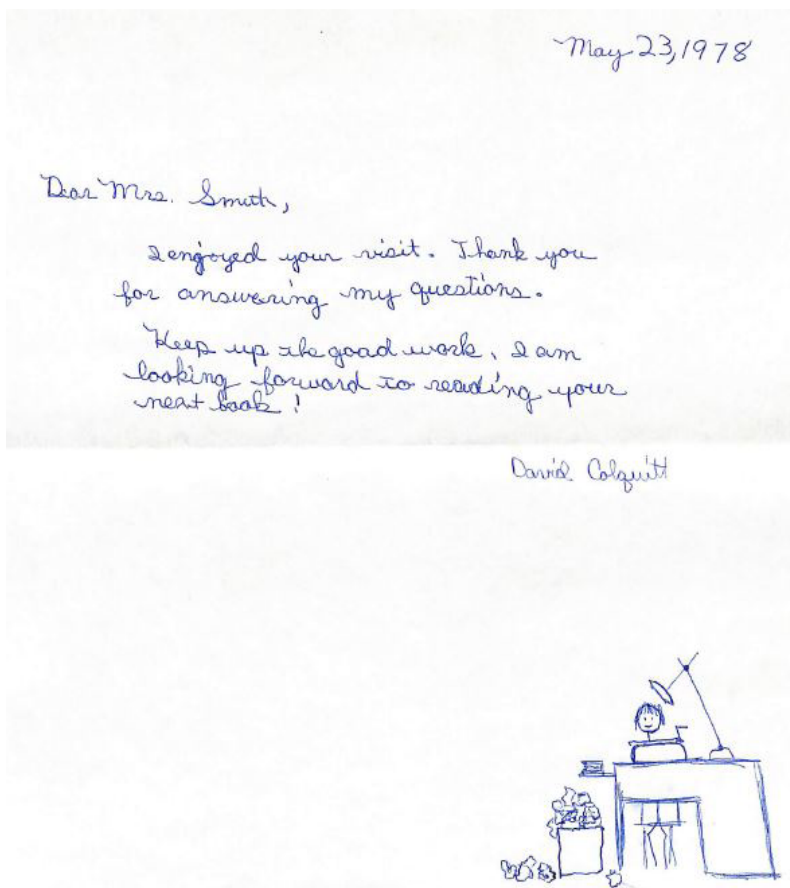 May 23, 1978
Dear Mrs. Smith,
I enjoyed your visit. Thank you
for answering my questions.
Keep up the good work. I am
looking forward to reading your
next book!
David Colquitt